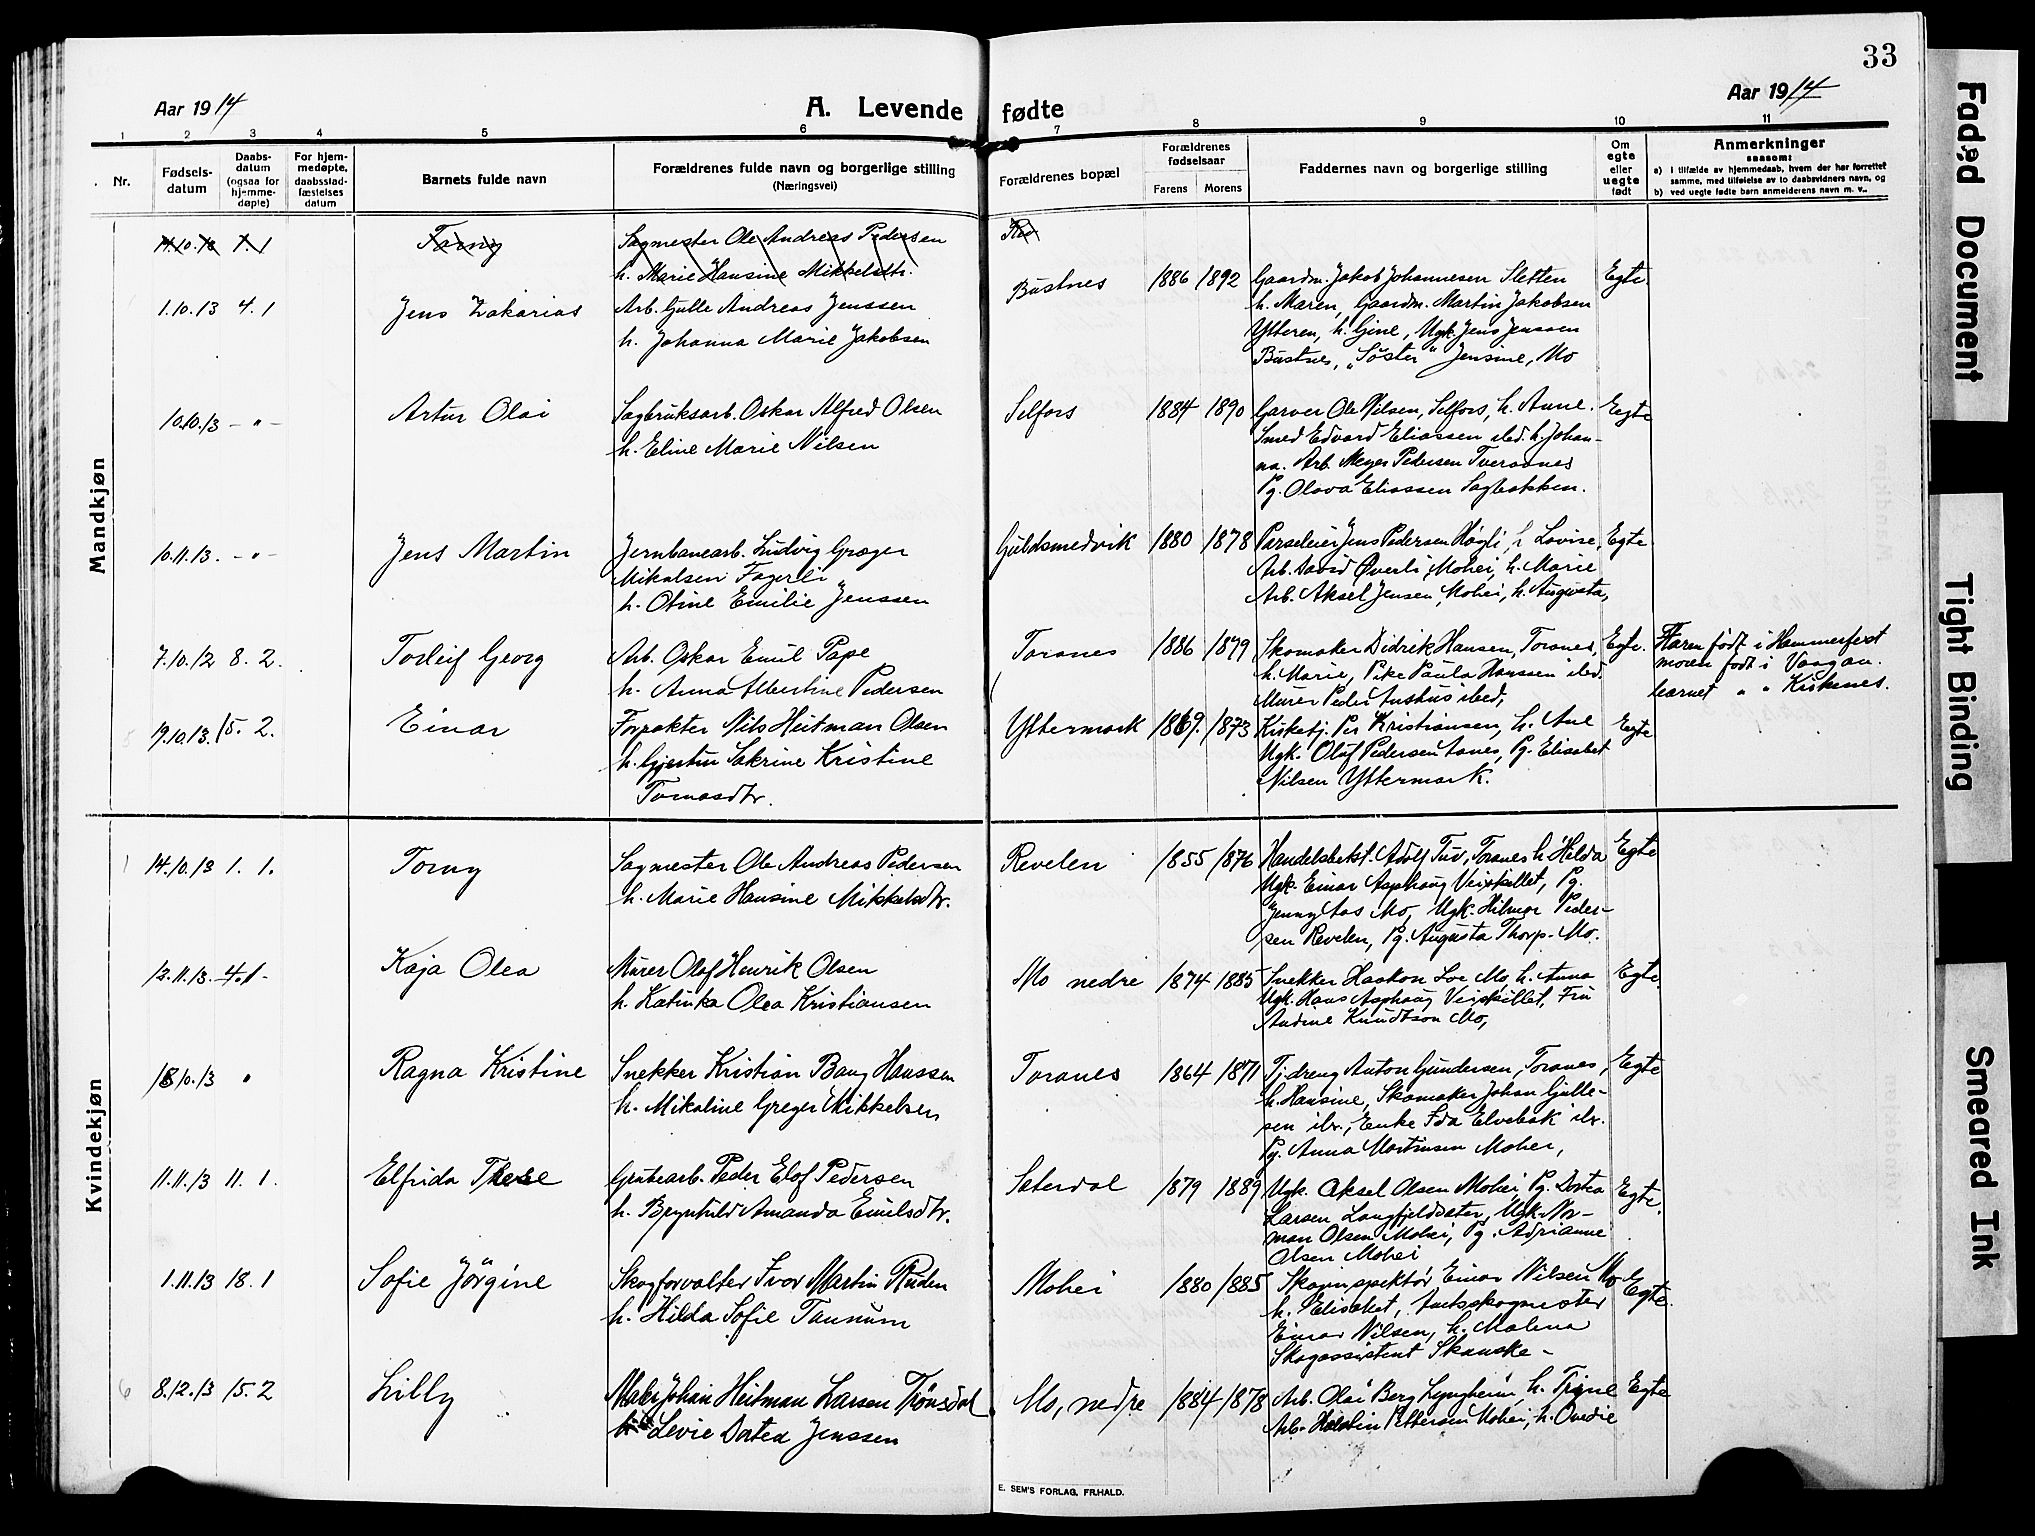 33
Aar 1914
A. Levende fødte
Aar 1914
1 2 3 4 5 6 7 8 9 10 11
Nr.
Fødsels-
datum
Daabs-
datum
(ogsaa for
hjemme-
døpte)
For hjem-
medøpte,
daabsstad-
fæstelses
datum
Barnets fulde navn
Forældrenes fulde navn og borgerlige stilling
(Næringsvei)
Forældrenes bopæl
Forældrenes
fødselsaar
Farens Morens
Faddernes navn og borgerlige stilling
Om
egte
eller
uegte
født
Anmerkninger
saasom:
a) i tilfælde av hjemmedaab, hvem der har forrettet
samme, med tilføielse av to daabsvidners navn, og
b) ved uegte fødte børn anmelderens navn m. v..
Mandkjøn
14.10.13 1.1 Torny Sagmester Ole Andreas Pedersen
h. Marie Hansine Mikkelsdtr.
1.10.13 4.1 Jens Zakarias Arb. Gulle Andreas Jenssen
h. Johanna Marie Jakobsen
Bustnes 1886 1892 Gaardm. Jakob Johannesen Sletten Egte.
h. Maren, Gaardm. Martin Jakobsen
Ytteren, h. Gine, Ugk. Jens Jenssen
Bustnes, "Søster" Jensine, Mo
10.10.13 - " - Artur Olai Sagbruksarb. Oskar Alfred Olsen
h. Eline Marie Nilsen
Selfors 1884 1890 Garver Ole Nilsen, Selfors, h. Anne. Egte
Smed Edvard Eliassen ibd. h. Johan-
na. Arb. Meyer Pedersen Tveraanes
Pg. Olava Eliassen Sagbakken.
10.11.13. - " - Jens Martin Jernbanearb. Ludvig Græger
Mikalsen Fagerli
h. Oline Emilie Jenssen
Guldsmedvik 1880 1878 Parseleier Jens Pedersen Høgli, h Lovise, Egte.
Arb. David Øverli, Mohei, h. Marie
Arb. Aksel Jensen, Mohei, h. Augusta,
7.10.12 8.2. Torleif Georg Arb. Oskar Emil Pape
h. Anna Albertine Pedersen
Toranes 1886 1879 Skomaker Didrik Hansen, Toranes, Egte.
h. Marie, Pike Paula Hanssen ibd.
Murer Peder Aushus ibed,
Faren født i Hammerfest
moren født i Vaagan.
barnet " " Kirkenes.
19.10.13. 15.2. Einar Forpakter Nils Heitman Olsen
h. Gjertru Sakrine Kristine
Tomasdtr.
Yttermork 1869. 1873 Kirketj. Per Kristiansen, h. Ane Egte
Ugk. Oluf Pedersen Aanes, Pg. Elisabet
Nilsen Yttermork.
Kvindekjøn
1 14.10.13 1.1. Torny Sagmester Ole Andreas Pedersen
h. Marie Hansine Mikkelsdtr.
Revelen 1855 1876 Handelsbekst. Adolf Tuv, Toranes h Hilda Egte
Ugk. Einar Asphaug Veiskillet, Pg.
Jenny Aas Mo, Ugk. Hilmar Peder-
sen Revelen, Pg. Augusta Thorp. Mo.
12.11.13. 4.1. Kaja Olea Murer Olaf Henrik Olsen
h. Katinka Olea Kristiansen
Mo nedre 1874 1885 Snekker Haakon Loe Mo, h. Anna Egte.
Ugk. Hans Asphaug Veiskillet, Fru
Andine Knudtson Mo,
18 10.13 " Ragna Kristine Snekker Kristian Bang Hanssen
h. Mikaline Greger Mikkelsen
Toranes 1864 1871 Tj.dreng Anton Gundersen, Toranes, Egte
h. Hansine, Skomaker Johan Gulle-
sen ib., Enke Ida Elvebak ib.
Pg. Anna Martinsen Mohei,
11.11.13 11.1. Elfrida Therese Grubearb. Peder Elof Pedersen
h. Brynhild Amanda Emilsdtr.
Seterdal 1879 1889 Ugk. Aksel Olsen Mohei, Pg. Dortea Egte.
Larsen Langfjeldsæter, Ugk. No-
man Olsen Mohei, Pg. Adrianne
Olsen Mohei
1.11.13 18.1 Sofie Jörgine Skogforvalter Ivar Martin Ruden
h. Hilda Sofie Taunum
Mohei 1880 1885 Skoginspektør Einar Nilsen Mo Egte.
h. Elisabet, Amtsskogmester
Einar Nilsen, h. Malena
Skogassistent Skanske -
6 8.12.13 15.2 Lilly Maler Johan Heitman Larsen Trönsdal
h. Levie Dortea Jenssen
Mo, nedre 1884 1878 Arb. Olai Berg Lyngheim, h. Trine Egte
Arb. Halstin Pettersen Mohei, h. Ovedie
E. SEM'S FORLAG, FR.HALD.
Faded Document
Tight Binding
Smeared Ink